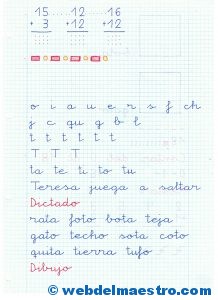 15 12 16
+ 3 +12 +12
o i a u e r s f ch
j c qu g b l
t t t t t t
T T T T
ta te ti to tu
Teresa juega a saltar
Dictado
rata foto bota teja
gato techo sota coto
quita tierra tufo
Dibujo
© webdelmaestro.com